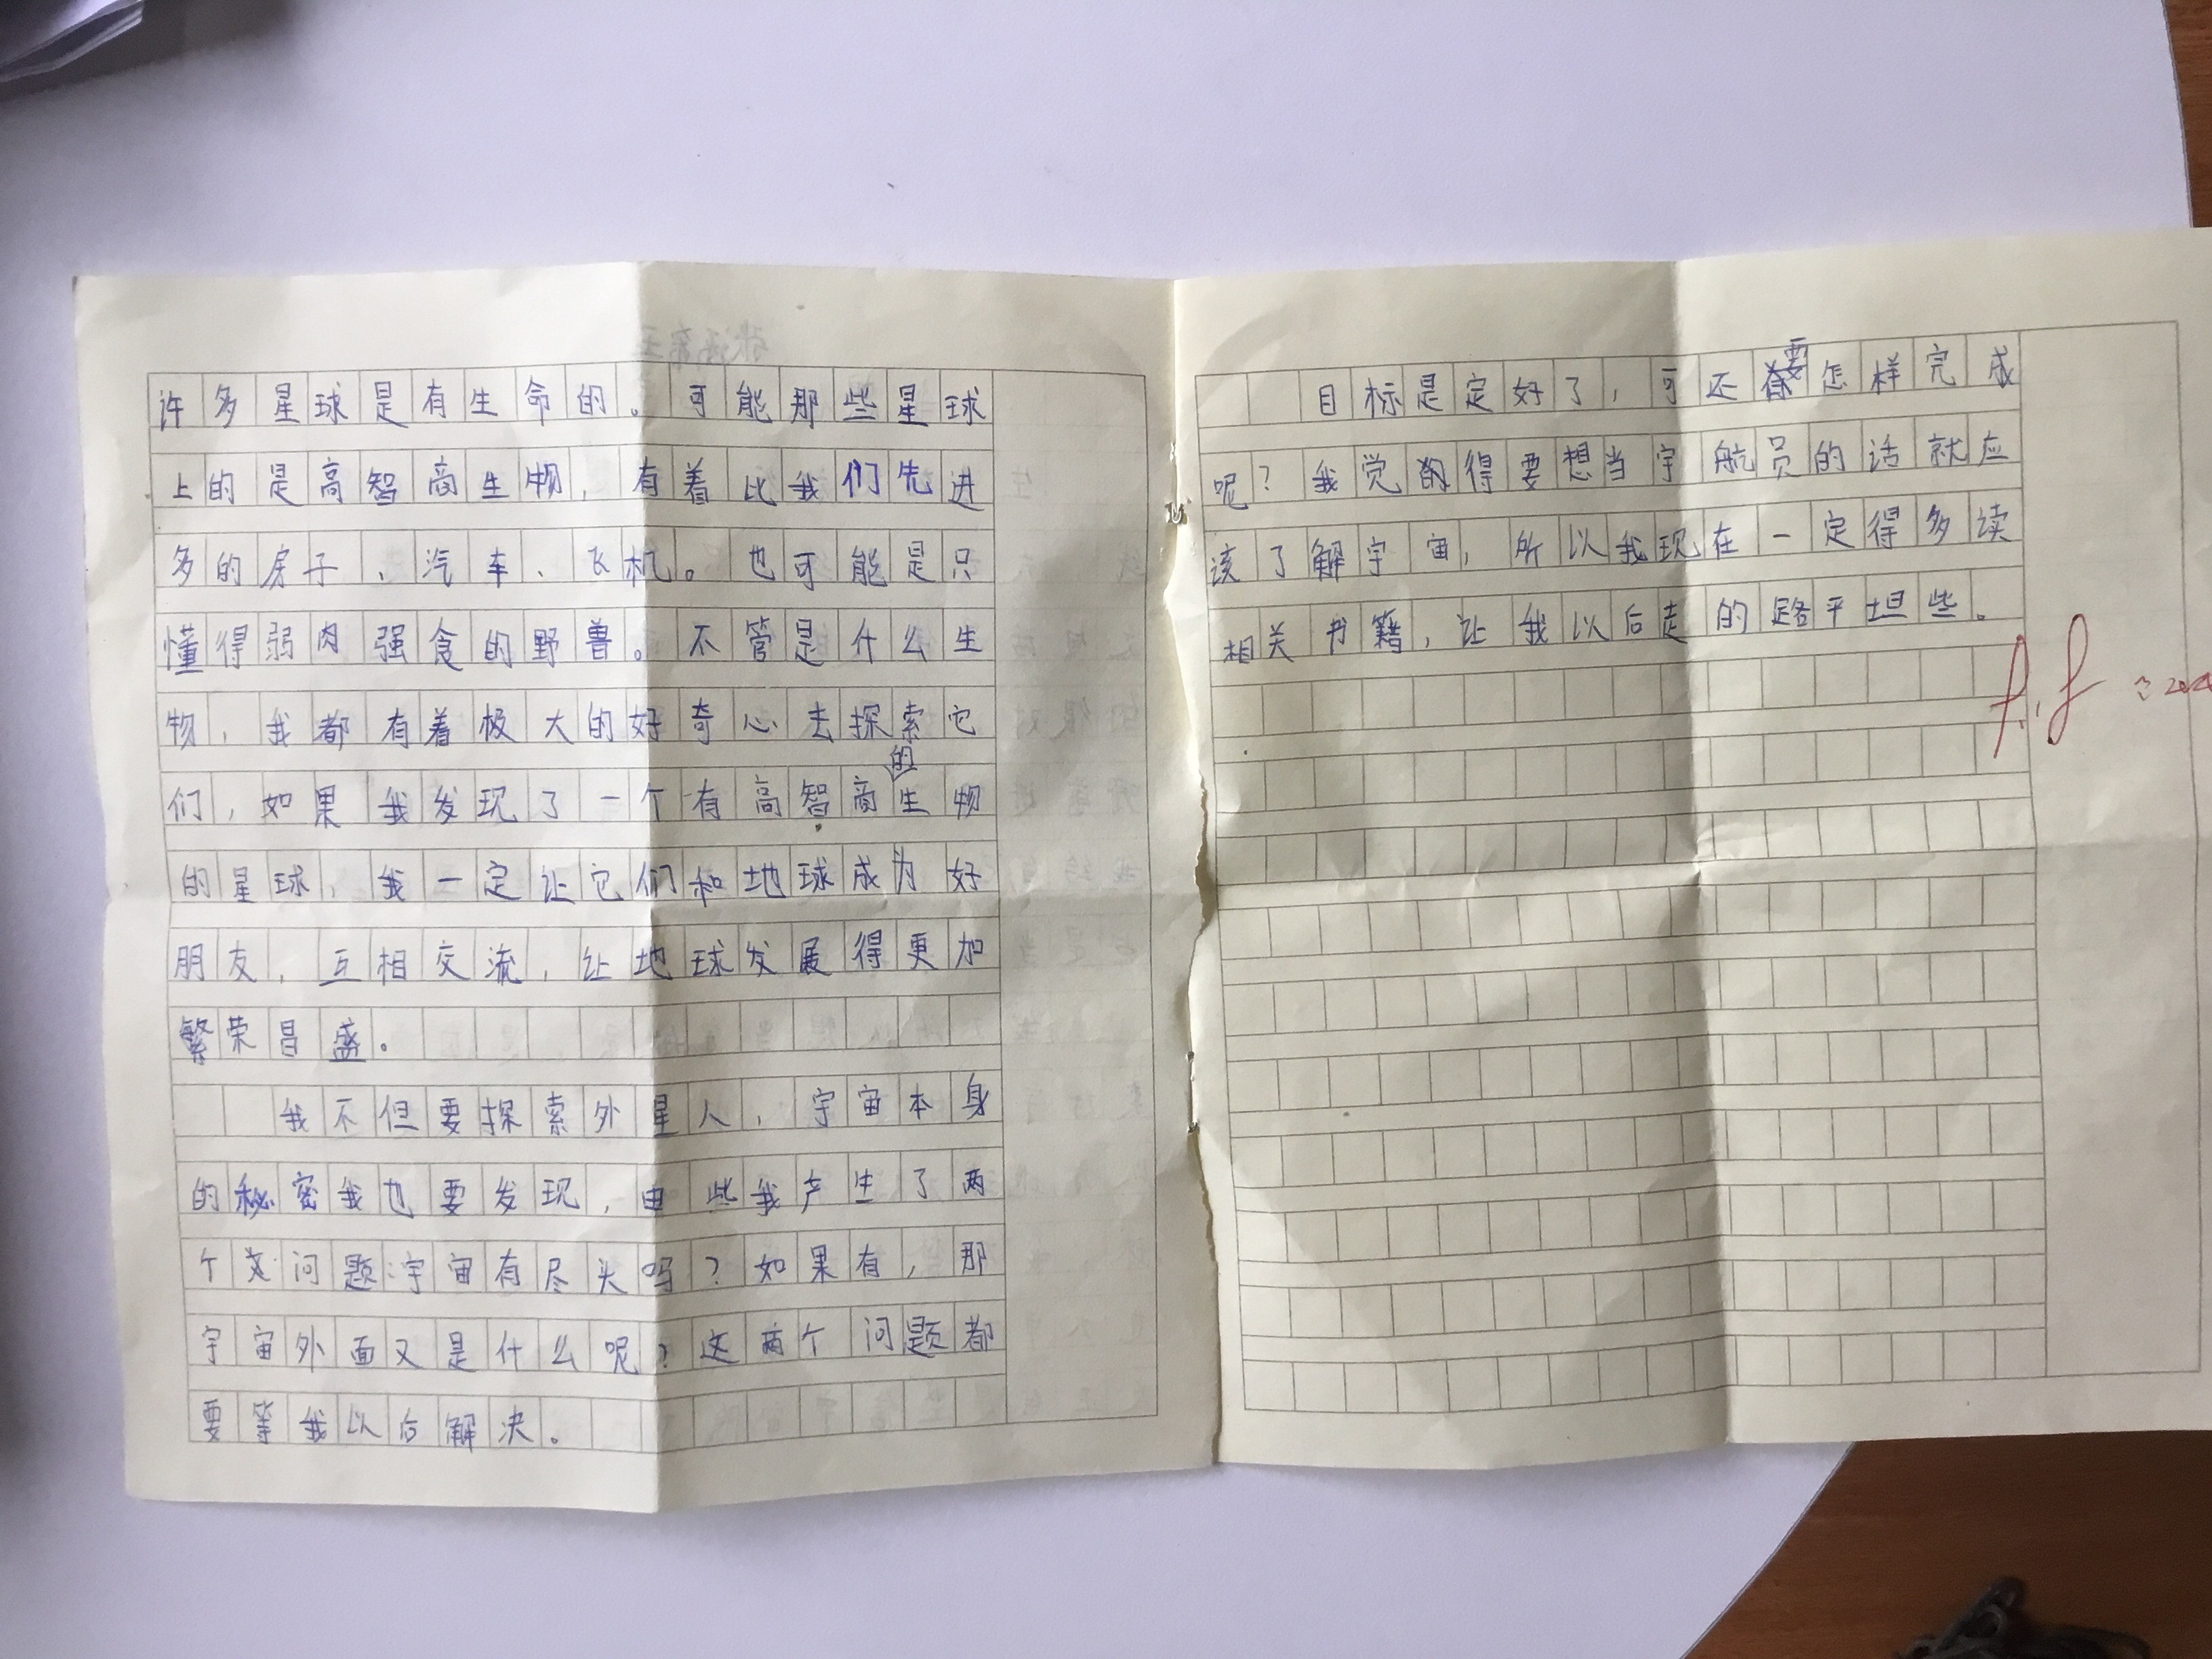 许多星球是有生命的。可能那些星球
上的是高智商生物，有着比我们先进
多的房子、汽车、飞机。也可能是只
懂得弱肉强食的野兽。不管是什么生
物，我都有着极大的好奇心去探索它
们，如果我发现了一个有高智商的生物
的星球，我一定让它们和地球成为好
朋友，互相交流，让地球发展得更加
繁荣昌盛。
我不但要探索外星人，宇宙本身
的秘密我也要发现，由些我产生了两
个问题:宇宙有尽头吗？如果有，那
宇宙外面又是什么呢？这两个问题都
要等我以后解决。
目标是定好了，可还要怎样完成
呢？我觉得要想当宇航员的话就应
该了解宇宙，所以我现在一定得多读
相关书籍，让我以后走的路平坦些。